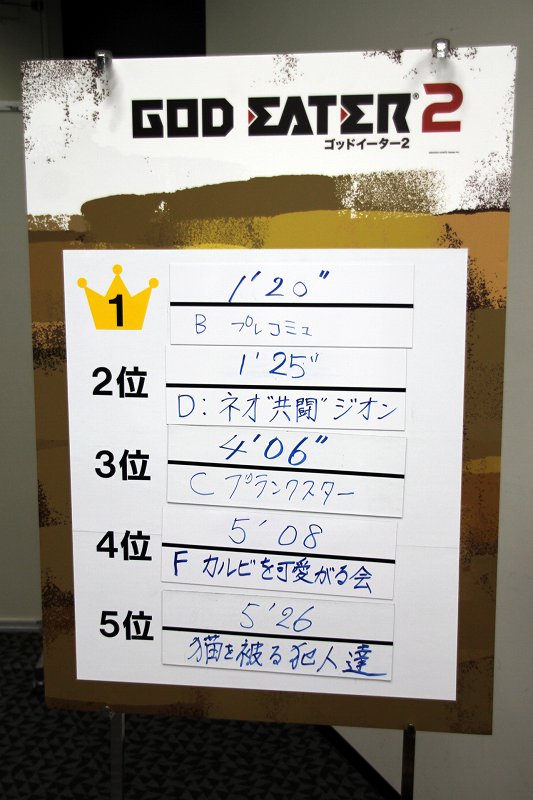 GOD EATER® 2
ゴッドイーター2
1
1'20"
B プレコミュ
2位
1'25"
D: ネオ"共闘"ジオン
3位
4'06"
C プランクスター
4位
5'08
F カルビを可愛がる会
5位
5'26
猫を被る犯人達